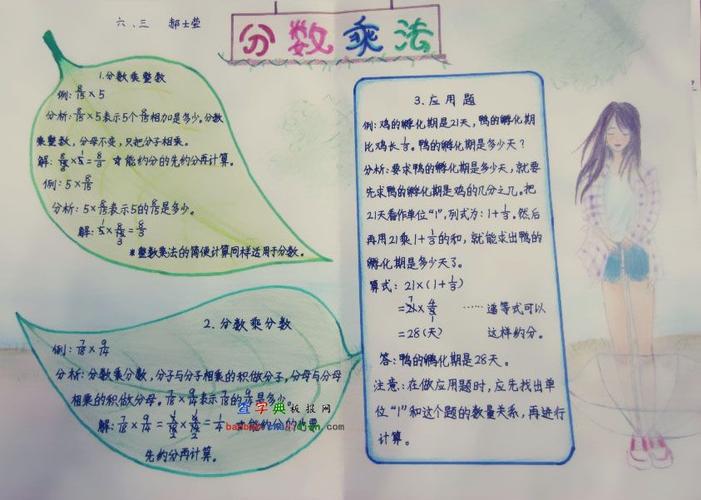 六、三 郝士莹
分数乘法
1.分数乘整数
例: 8/15×5
分析: 8/15×5表示5个8/15相加是多少。分数
乘整数,分母不变,只把分子相乘。
☆能约分的先约分再计算。
例: 5×8/15
分析: 5×8/15表示5的8/15是多少。
*整数乘法的简便计算同样适用于分数。
2. 分数乘分数
例: 7/18×9/14
分析: 分数乘分数,分子与分子相乘的积做分子,分母与分母
相乘的积做分母。7/18×9/14表示7/18的9/14是多少。
先约分再计算。
3.应用题
例: 鸡的孵化期是21天,鸭的孵化期
比鸡长1/3。鸭的孵化期是多少天?
分析: 要求鸭的孵化期是多少天,就要
先求鸭的孵化期是鸡的几分之几。把
21天看作单位“1”,列式为: 1+1/3。然后
再用21乘1+1/3的和,就能求出鸭的
孵化期是多少天了。
算式: 21×(1+1/3)
=21×4/3 ……递等式可以
=28(天) 这样约分。
答: 鸭的孵化期是28天。
注意: 在做应用题时,应先找出单
位“1”和这个题的数量关系,再进行
计算。